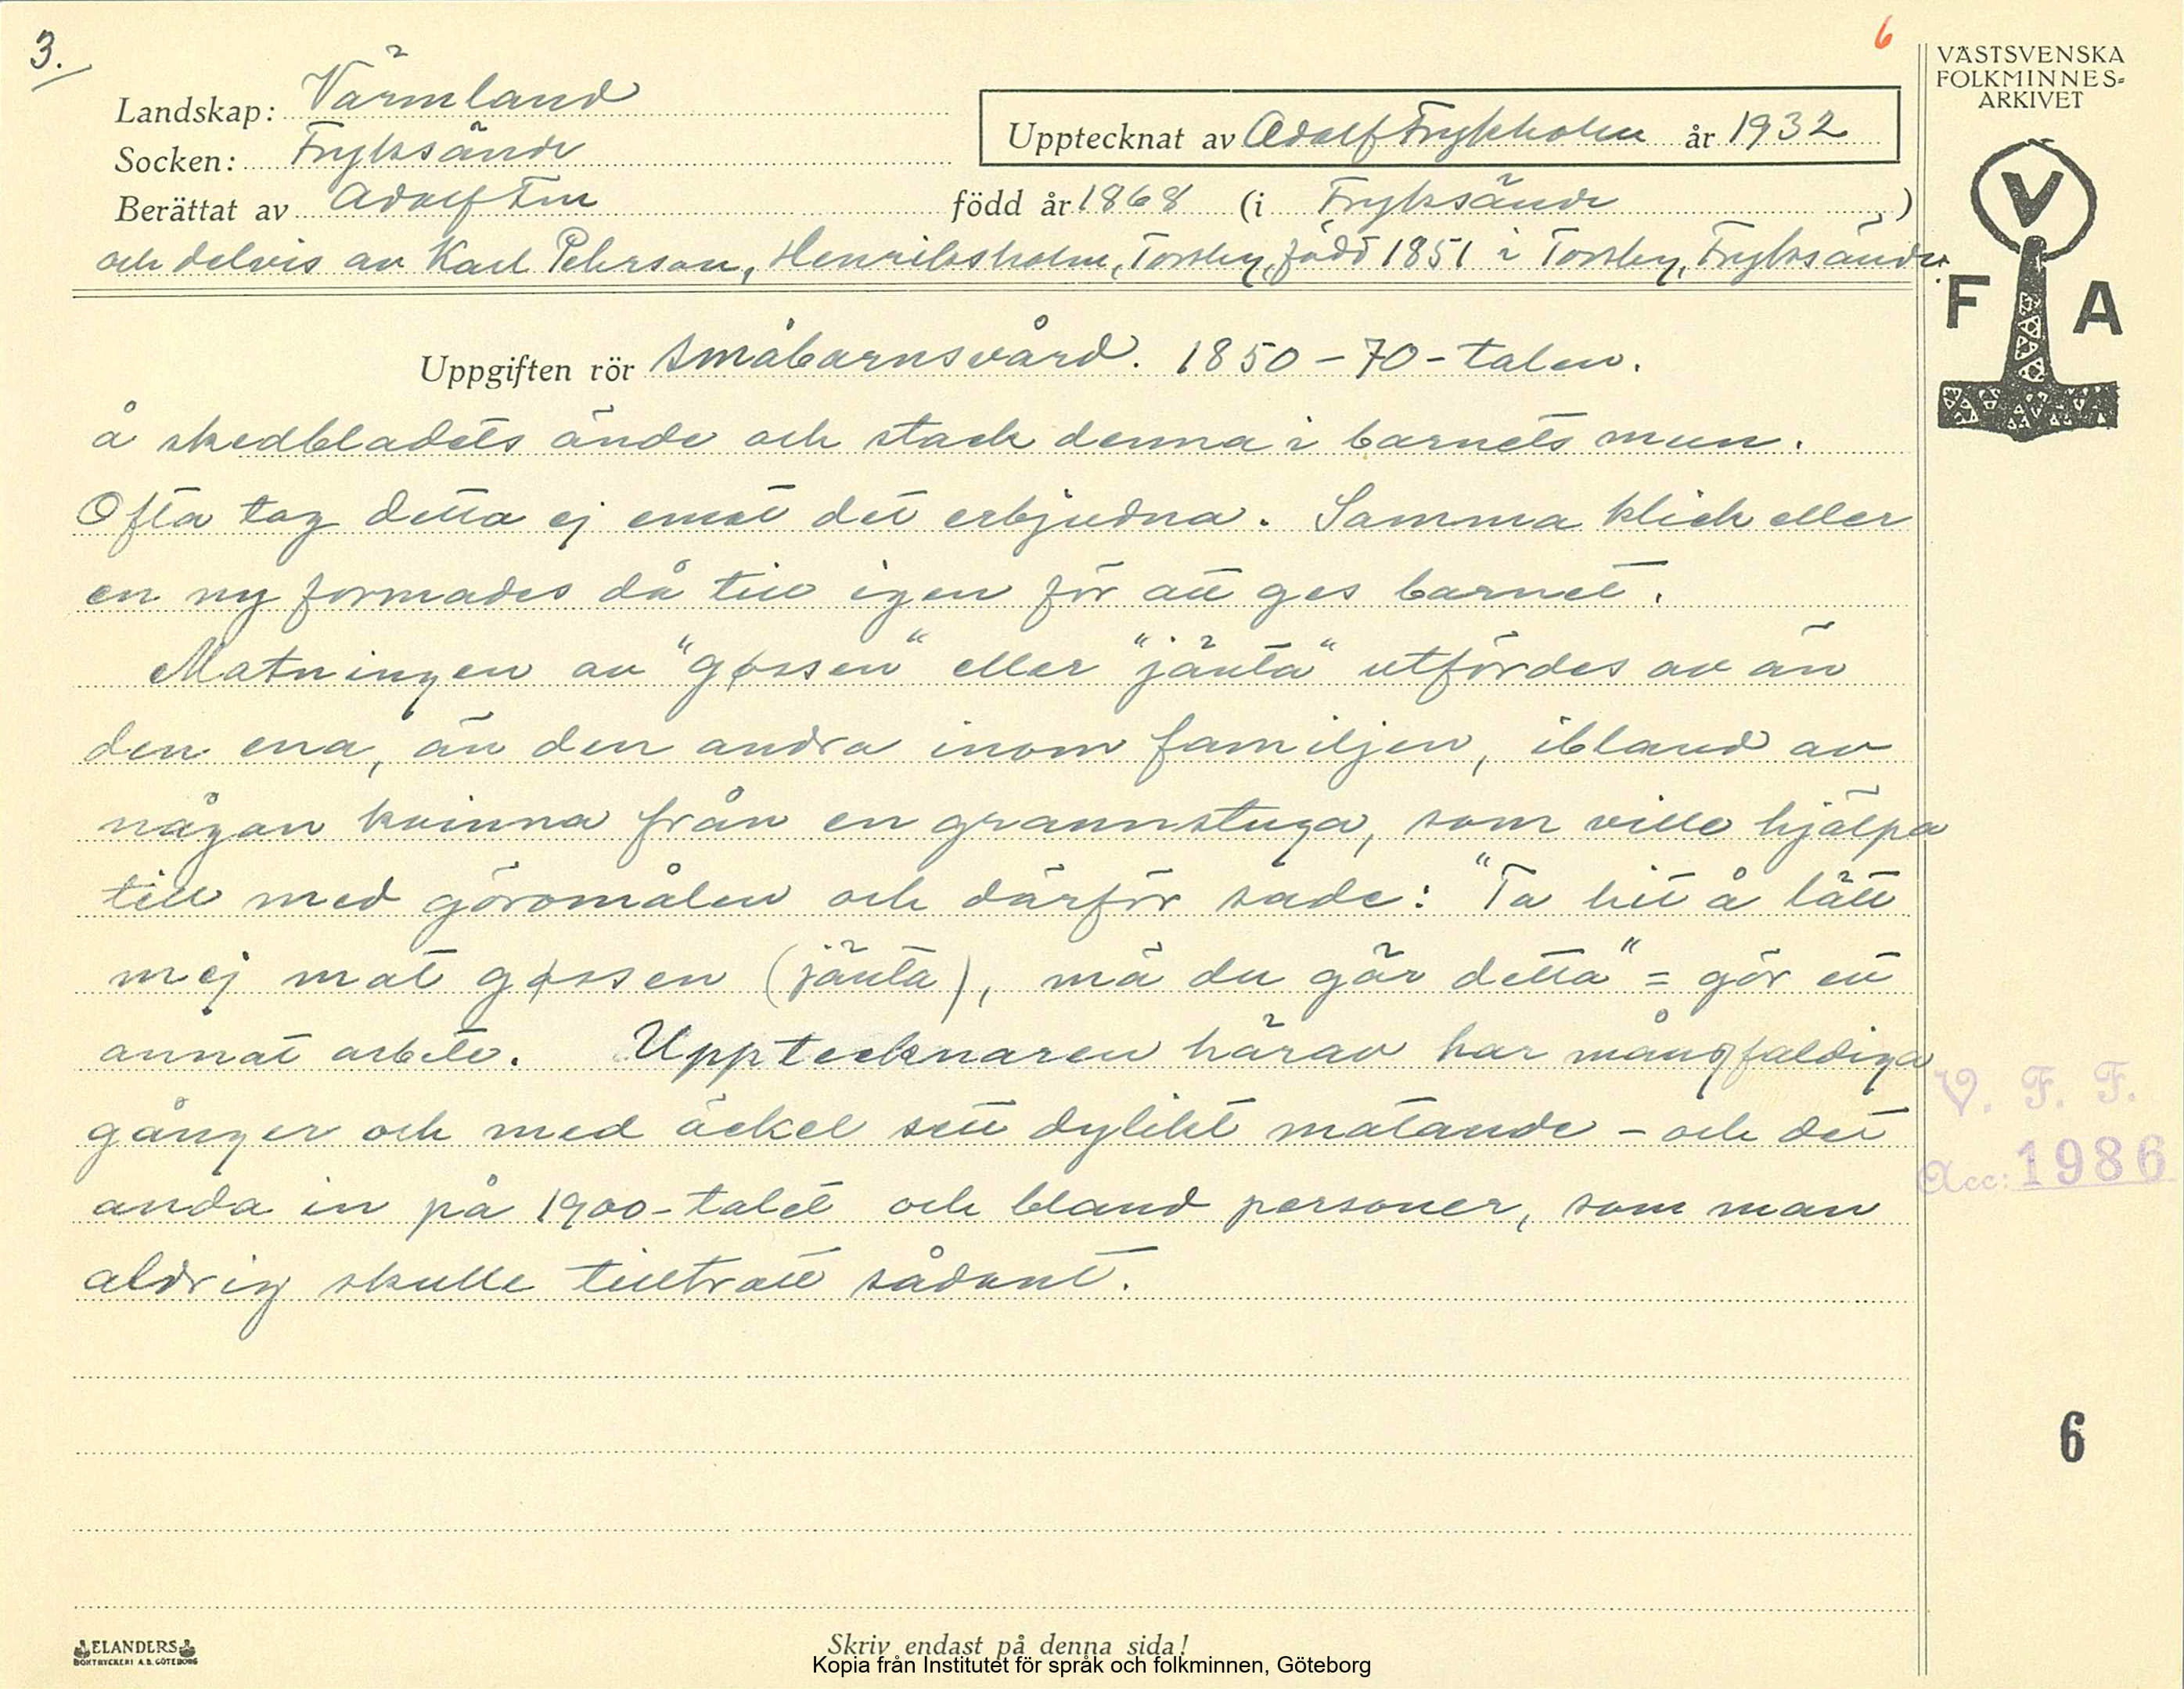 3.
6
VÄSTSVENSKA
FOLKMINNES-
ARKIVET
Landskap: Värmland
Upptecknat av Adolf Frykholm år 1932
Socken: Fryksände
Berättat av Adolf Em född år 1868 (i Fryksände)
och delvis av Karl Pehrson, Henriksholm, Torsby, född 1851 i Torsby, Fryksände.
V
F A
Uppgiften rör Småbarnsvård. 1850-70-talen.
å skedbladets ände och stack denna i barnets mun.
Ofta tog detta ej emot det erbjudna. Samma klick eller
en ny formades då till igen för att ges barnet.
Matningen av "gøssen" eller "jänta" utfördes av än
den ena, än den andra inom familjen, ibland av
någon kvinna från en grannstuga, som ville hjälpa
till med göromålen och därför sade: "Ta hit å lätt
mej mat gøssen (jänta), mä du gär detta" = gör ett
annat arbete. Upptecknaren härav har mångfaldiga
gånger och med äckel sett dylikt matande - och det
ända in på 1900-talet och bland personer, som man
aldrig skulle tilltrott sådant.
V. F. F.
Acc: 1986
6
ELANDERS
BOKTRYCKERI A.B. GÖTEBORG
Skriv endast på denna sida!
Kopia från Institutet för språk och folkminnen, Göteborg